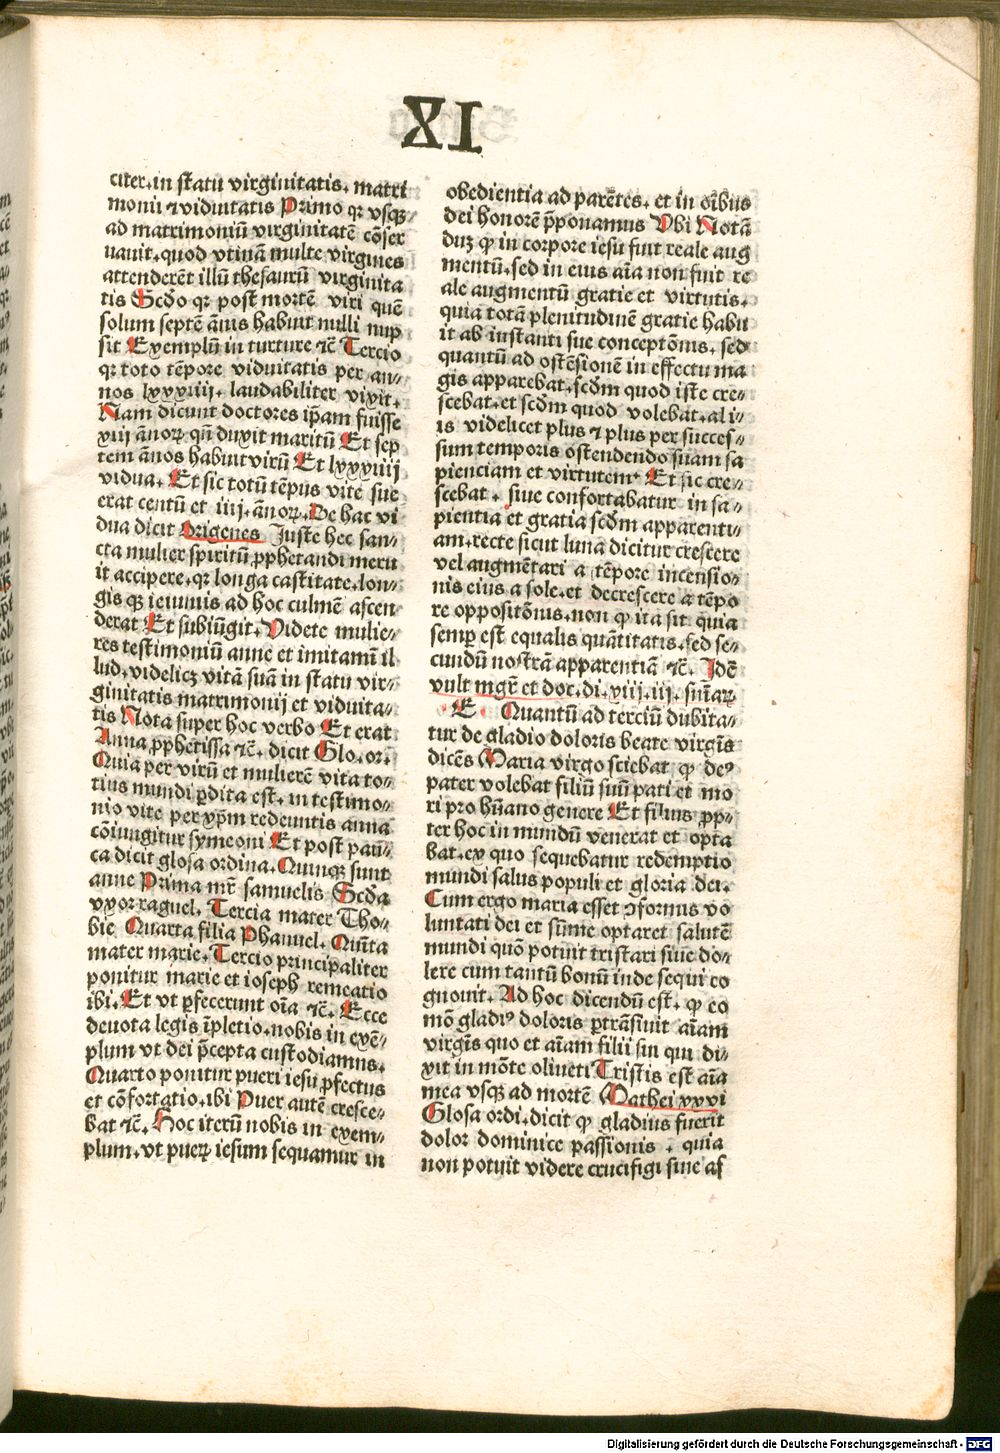 XI
citer.in statu virginitatis. matri
monii ⁊ viduitatis Primo qꝛ vsqꝫ
ad matrimoniū virginitatē cōser
uauit.quod vtinā multe virgines
attenderēt illū thesaurū virginita
tis Scdo qꝛ post mortē viri quē
solum septē ānis habuit nulli nup
sit Exemplū in turture ⁊c̄ Tercio
qꝛ toto tēpore viduitatis per an⸗
nos lxxxiiij. laudabiliter vixit.
Nam dicunt doctores ip̄am fuisse
xiij ānoꝝ qn̄ duxit maritū Et sep
tem ānos habuit virū Et lxxxiiij
vidua. Et sic totū tēpus vite sue
erat centū et iiij.ānoꝝ. De hac vi
dua dicit Origenes Juste hec san⸗
cta mulier spiritū ꝓphetandi meru
it accipere.qꝛ longa castitate.lon⸗
gis qꝫ ieiuniis ad hoc culmē ascen
derat Et subiūgit. Videte mulie⸗
res testimoniū anne et imitamī il
lud.videlicꝫ vitā suā in statu vir⸗
ginitatis matrimonij et viduita⸗
tis Nota super hoc verbo Et erat
Anna ꝓphetissa ⁊c̄. dicit Glo.or.
Quia per virū et mulierē vita to⸗
tius mundi ꝑdita est. in testimo⸗
nio vite per xp̄m redeuntis anna
cōiungitur symeoni Et post pau⸗
ca dicit glosa ordina. Quinqꝫ sunt
anne Prima mr̄ samuelis Scda
vxor raguel. Tercia mater Tho⸗
bie Quarta filia Phanuel. Quīta
mater marie. Tercio principaliter
ponitur marie et ioseph remeatio
ibi. Et vt ꝑfecerunt oīa ⁊c̄. Ecce
deuota legis īpletio.nobis in exē⸗
plum vt dei p̄cepta custodiamus.
Quarto ponitur pueri iesu ꝓfectus
et cōfortatio.ibi Puer autē cresce⸗
bat ⁊c̄. Hoc iterū nobis in exem⸗
plum.vt pueꝝ iesum sequamur in
obedientia ad parētes. et in oībus
dei honorē p̄ponamus Vbi Notā
duꝫ ꝙ in corpore iesu fuit reale aug
mentū.sed in eius aīa non fuit re
ale augmentū gratie et virtutis.
quia totā plenitudinē gratie habu
it ab instanti sue conceptōnis. sed
quantū ad ostēsionē in effectu ma
gis apparebat.scdm quod iste cre⸗
scebat.et scdm quod volebat.al i⸗
is videlicet plus ⁊ plus per succes⸗
sum temporis ostendendo suam sa
pienciam et virtutem. Et sic cre⸗
scebat. siue confortabatur in sa⸗
pientia et gratia scdm apparenti⸗
am.recte sicut luna dicitur crescere
vel augmētari a tēpore incensio⸗
nis eius a sole.et decrescere a tēpo
re oppositōnis.non ꝙ ita sit quia
semp̄ est equalis quātitatis.sed se⸗
cundū nostrā apparentiā ⁊c̄. Idē
vult mgr̄ et doc.di.xiij.iij. sn̄iaꝝ
E Quantū ad terciū dubita⸗
tur de gladio doloris beate virgīs
dicēs Maria virgo sciebat ꝙ deꝰ
pater volebat filiū suū pati et mo
ri pro hūano genere Et filius ꝓp⸗
ter hoc in mundū venerat et opta
bat.ex quo sequebatur redemptio
mundi salus populi et gloria dei.
Cum ergo maria esset ꝯformis vo
luntati dei et sūme optaret salutē
mundi quō potuit tristari siue do⸗
lere cum tantū bonū inde sequi co
gnouit. Ad hoc dicendū est. ꝙ eo
mō gladiꝰ doloris ꝑtrāsiuit aīam
virgīs quo et aīam filii sui qui di⸗
xit in mōte oliueti Tristis est aīa
mea vsqꝫ ad mortē Mathei xxvi
Glosa ordi.dicit ꝙ gladius fuerit
dolor dominice passionis . quia
non potuit videre crucifigi sine af
Digitalisierung gefördert durch die Deutsche Forschungsgemeinschaft - DFG